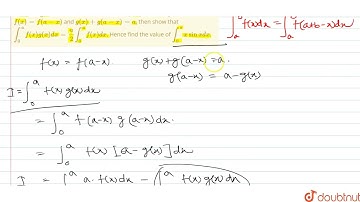 f(x) = f(a-x) and g(x) + g(a-x) = a, then show that
∫₀ᵃ f(x)g(x)dx = a/2 ∫₀ᵃ f(x)dx. Hence find the value of
∫₀ᵃ f(x)dx = ∫₀ᵃ f(a+b-x)dx
f(x) = f(a-x). g(x) + g(a-x) = a.
g(a-x) = a - g(x)
I = ∫₀ᵃ f(x) g(x) dx
= ∫₀ᵃ f(a-x) g(a-x) dx.
= ∫₀ᵃ f(x) [a - g(x)] dx
I = ∫ᵃ a. f(x) dx - ∫ᵃ f(x) g(x) dx
doubtnut